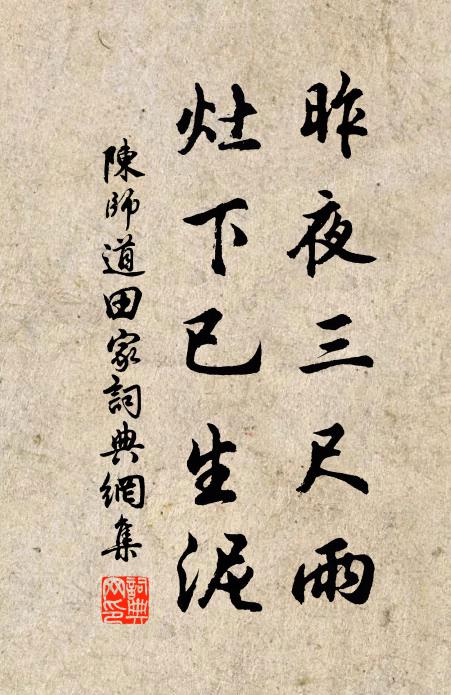 昨夜三尺雨
灶下已生泥
陳師道田家詞典網集
詞典網印